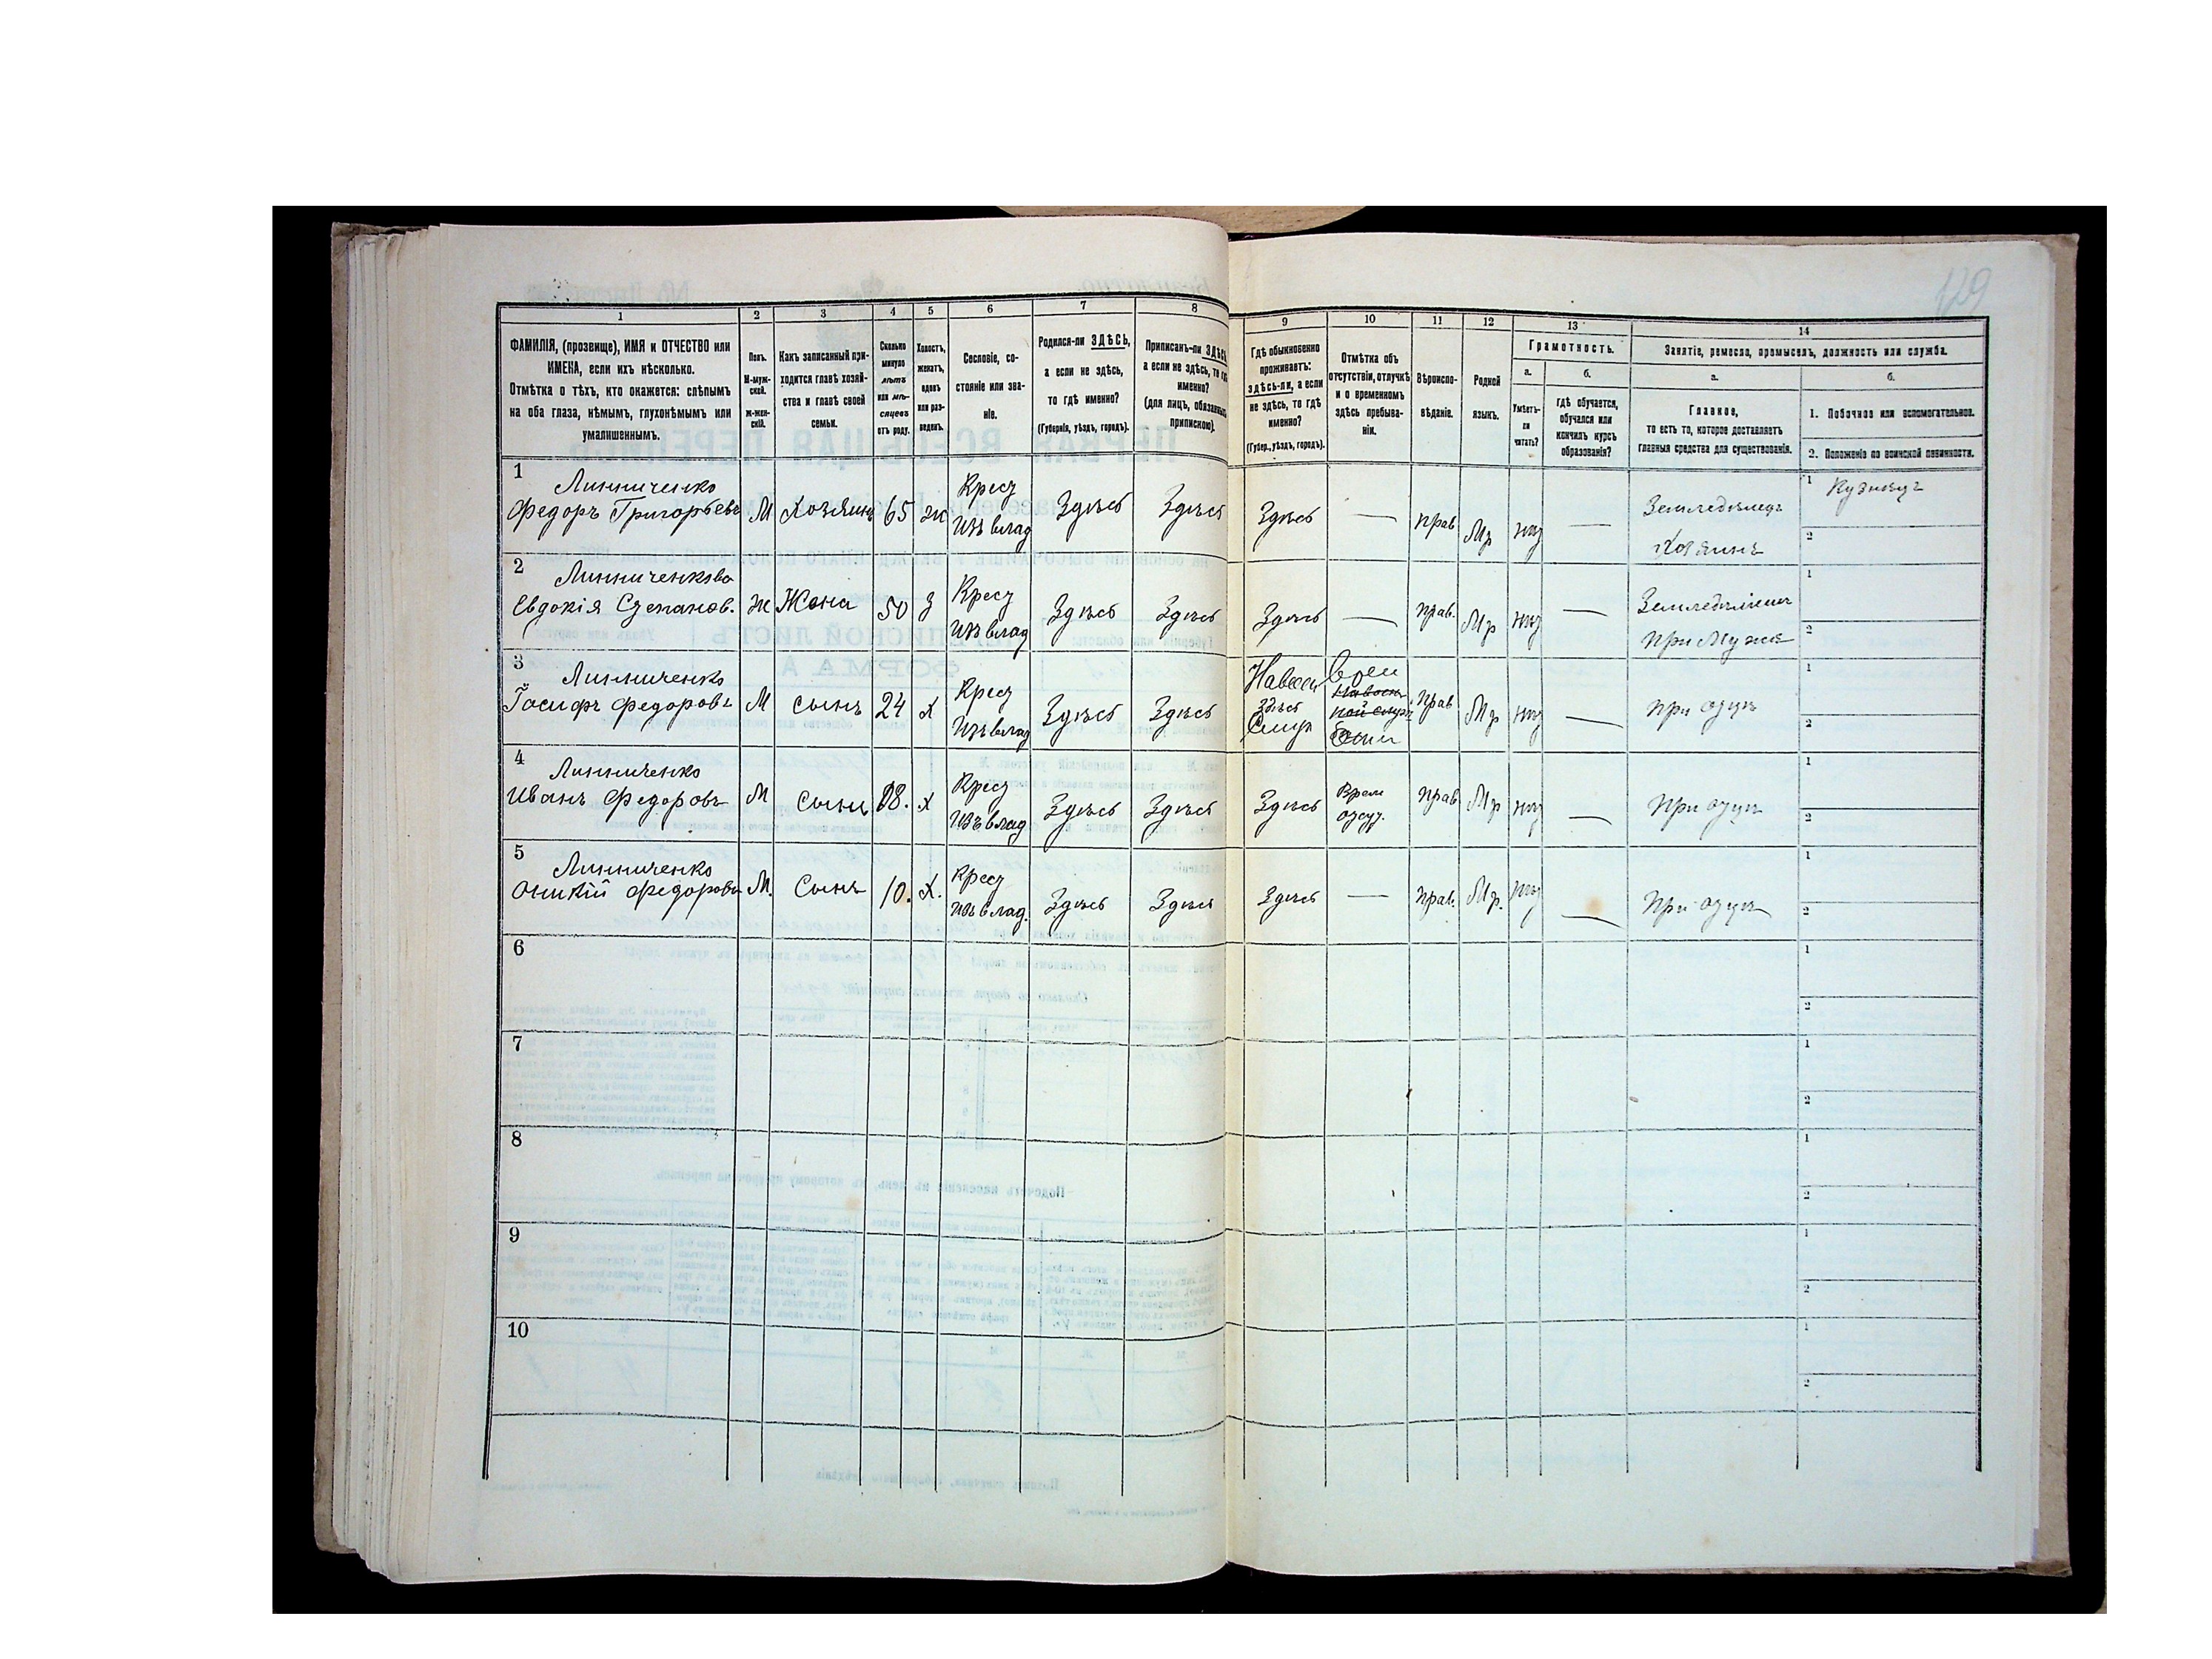 129
1 2 3 4 5 6 7 8 9 10 11 12 13 14
ФАМИЛІЯ, (прозвище), ИМЯ и ОТЧЕСТВО или
ИМЕНА, если ихъ нѣсколько.
Отмѣтка о тѣхъ, кто окажется: слѣпымъ
на оба глаза, нѣмымъ, глухонѣмымъ или
умалишеннымъ.
Полъ.
М-муж-
ской.
ж-жен-
скій.
Какъ записанный при-
ходится главѣ хозяй-
ства и главѣ своей
семьи.
Сколько
минуло
лѣтъ
или мѣ-
сяцевъ
отъ роду.
Холостъ,
женатъ,
вдовъ
или раз-
веденъ.
Сословіе, со-
стояніе или зва-
ніе.
Родился-ли ЗДѢСЬ,
а если не здѣсь,
то гдѣ именно?
(Губернія, уѣздъ, городъ).
Приписанъ-ли ЗДѢСЬ,
а если не здѣсь, то гдѣ
именно?
(для лицъ, обязанныхъ
припискою).
Гдѣ обыкновенно
проживаетъ:
здѣсь-ли, а если
не здѣсь, то гдѣ
именно?
(Губер., уѣздъ, городъ).
Отмѣтка объ
отсутствіи, отлучкѣ
и о временномъ
здѣсь пребыва-
ніи.
Вѣроиспо-
вѣданіе.
Родной
языкъ.
Грамотность.
а.
Умѣетъ-
ли
читать?
б.
гдѣ обучается,
обучался или
кончилъ курсъ
образованія?
Занятіе, ремесло, промыселъ, должность или служба.
а.
Главное,
то есть то, которое доставляетъ
главныя средства для существованія.
б.
1. Побочное или вспомогательное.
2. Положеніе по воинской повинности.
1
Линниченко
Федоръ Григорьевъ М Хозяинъ 65 ж
Крест
Изъ влад
Здѣсь Здѣсь Здѣсь — прав Мр нѣт —
Земледѣлецъ
Хозяинъ
1 Кузнецъ
2
2
Линниченкова
Евдокія Степанов. ж Жена 50 з
Крест
Изъ влад
Здѣсь Здѣсь Здѣсь — прав. Мр нѣт —
при Мужѣ
1
2
3
Линниченко
Іосифъ Федоровъ М сынъ 24 х
Крест
Изъ влад
Здѣсь Здѣсь
здѣсь
прав Мр нѣт —
при отцѣ
1
2
4
Линниченко
Иванъ Федоровъ М Сынъ 18. х
Крест
Изъ влад
Здѣсь Здѣсь Здѣсь
Врем
отсут.
прав Мр нѣт —
При отцѣ
1
2
5
Линниченко
Федоровъ М. Сынъ 10. х.
Крест
Изъ влад.
Здѣсь Здѣсь Здѣсь — прав. Мр. нѣт —
При отцѣ
1
2
6
1
2
7
1
2
8
1
2
9
1
2
10
1
2